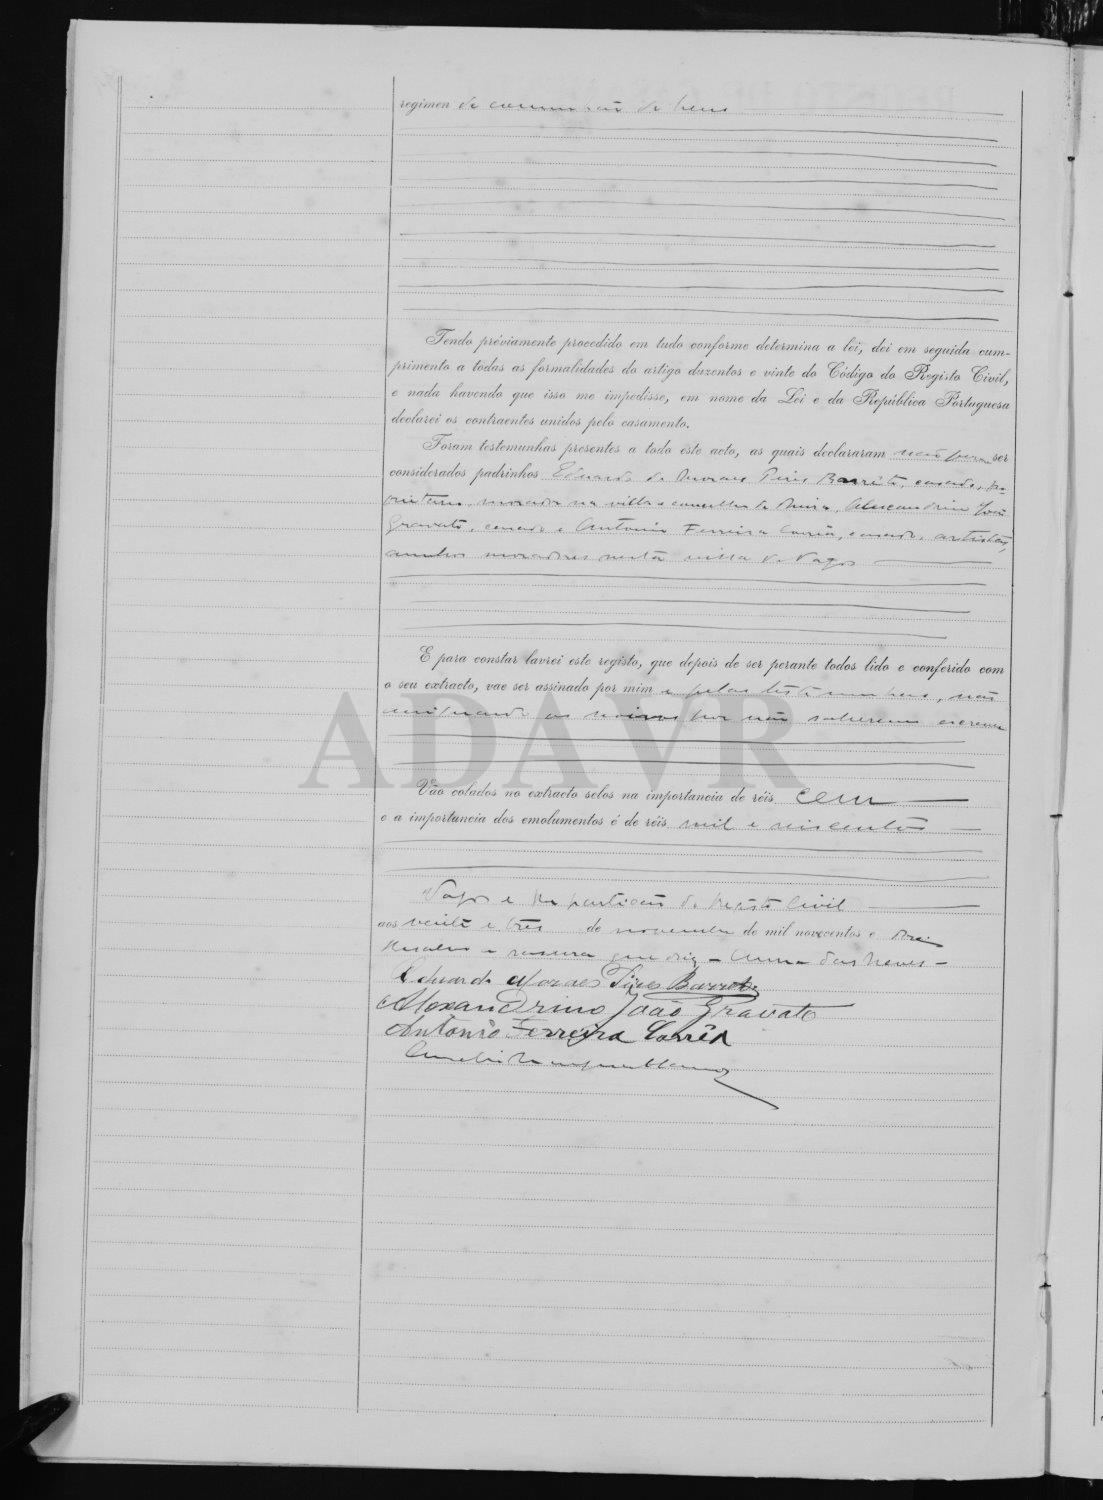 regimen de communhão de bens
Tendo préviamente procedido em tudo conforme determina a lei, dei em seguida cum-
primento a todas as formalidades do artigo duzentos e vinte do Código do Registo Civil,
e nada havendo que isso me impedisse, em nome da Lei e da República Portuguesa
declarei os contraentes unidos pelo casamento.
Foram testemunhas presentes a todo este acto, as quais declararam não ser
considerados padrinhos Eduardo de Moraes Pires Barreto, casado, pro-
prietario, morador na villa e concelho de Mira, Alexandrino João
Gravato, casado e Antonio Ferreira Corrêa, casado, artistas,
ambos moradores nesta villa de Vagos
E para constar lavrei este registo, que depois de ser perante todos lido e conferido com
o seu extracto, vae ser assinado por mim e pelas testemunhas, não
assignando os noivos por não saberem escrever
ADAVR
Vão colados no extracto selos na importancia de réis cem
e a importancia dos emolumentos é de réis mil e
Vagos e Repartição do Registo Civil
aos vinte e três de novembro de mil novecentos e
rasura que diz - Anna das Neves -
Eduardo Moraes Pires Barreto
Alexandrino João Gravato
Antonio Ferreira Corrêa